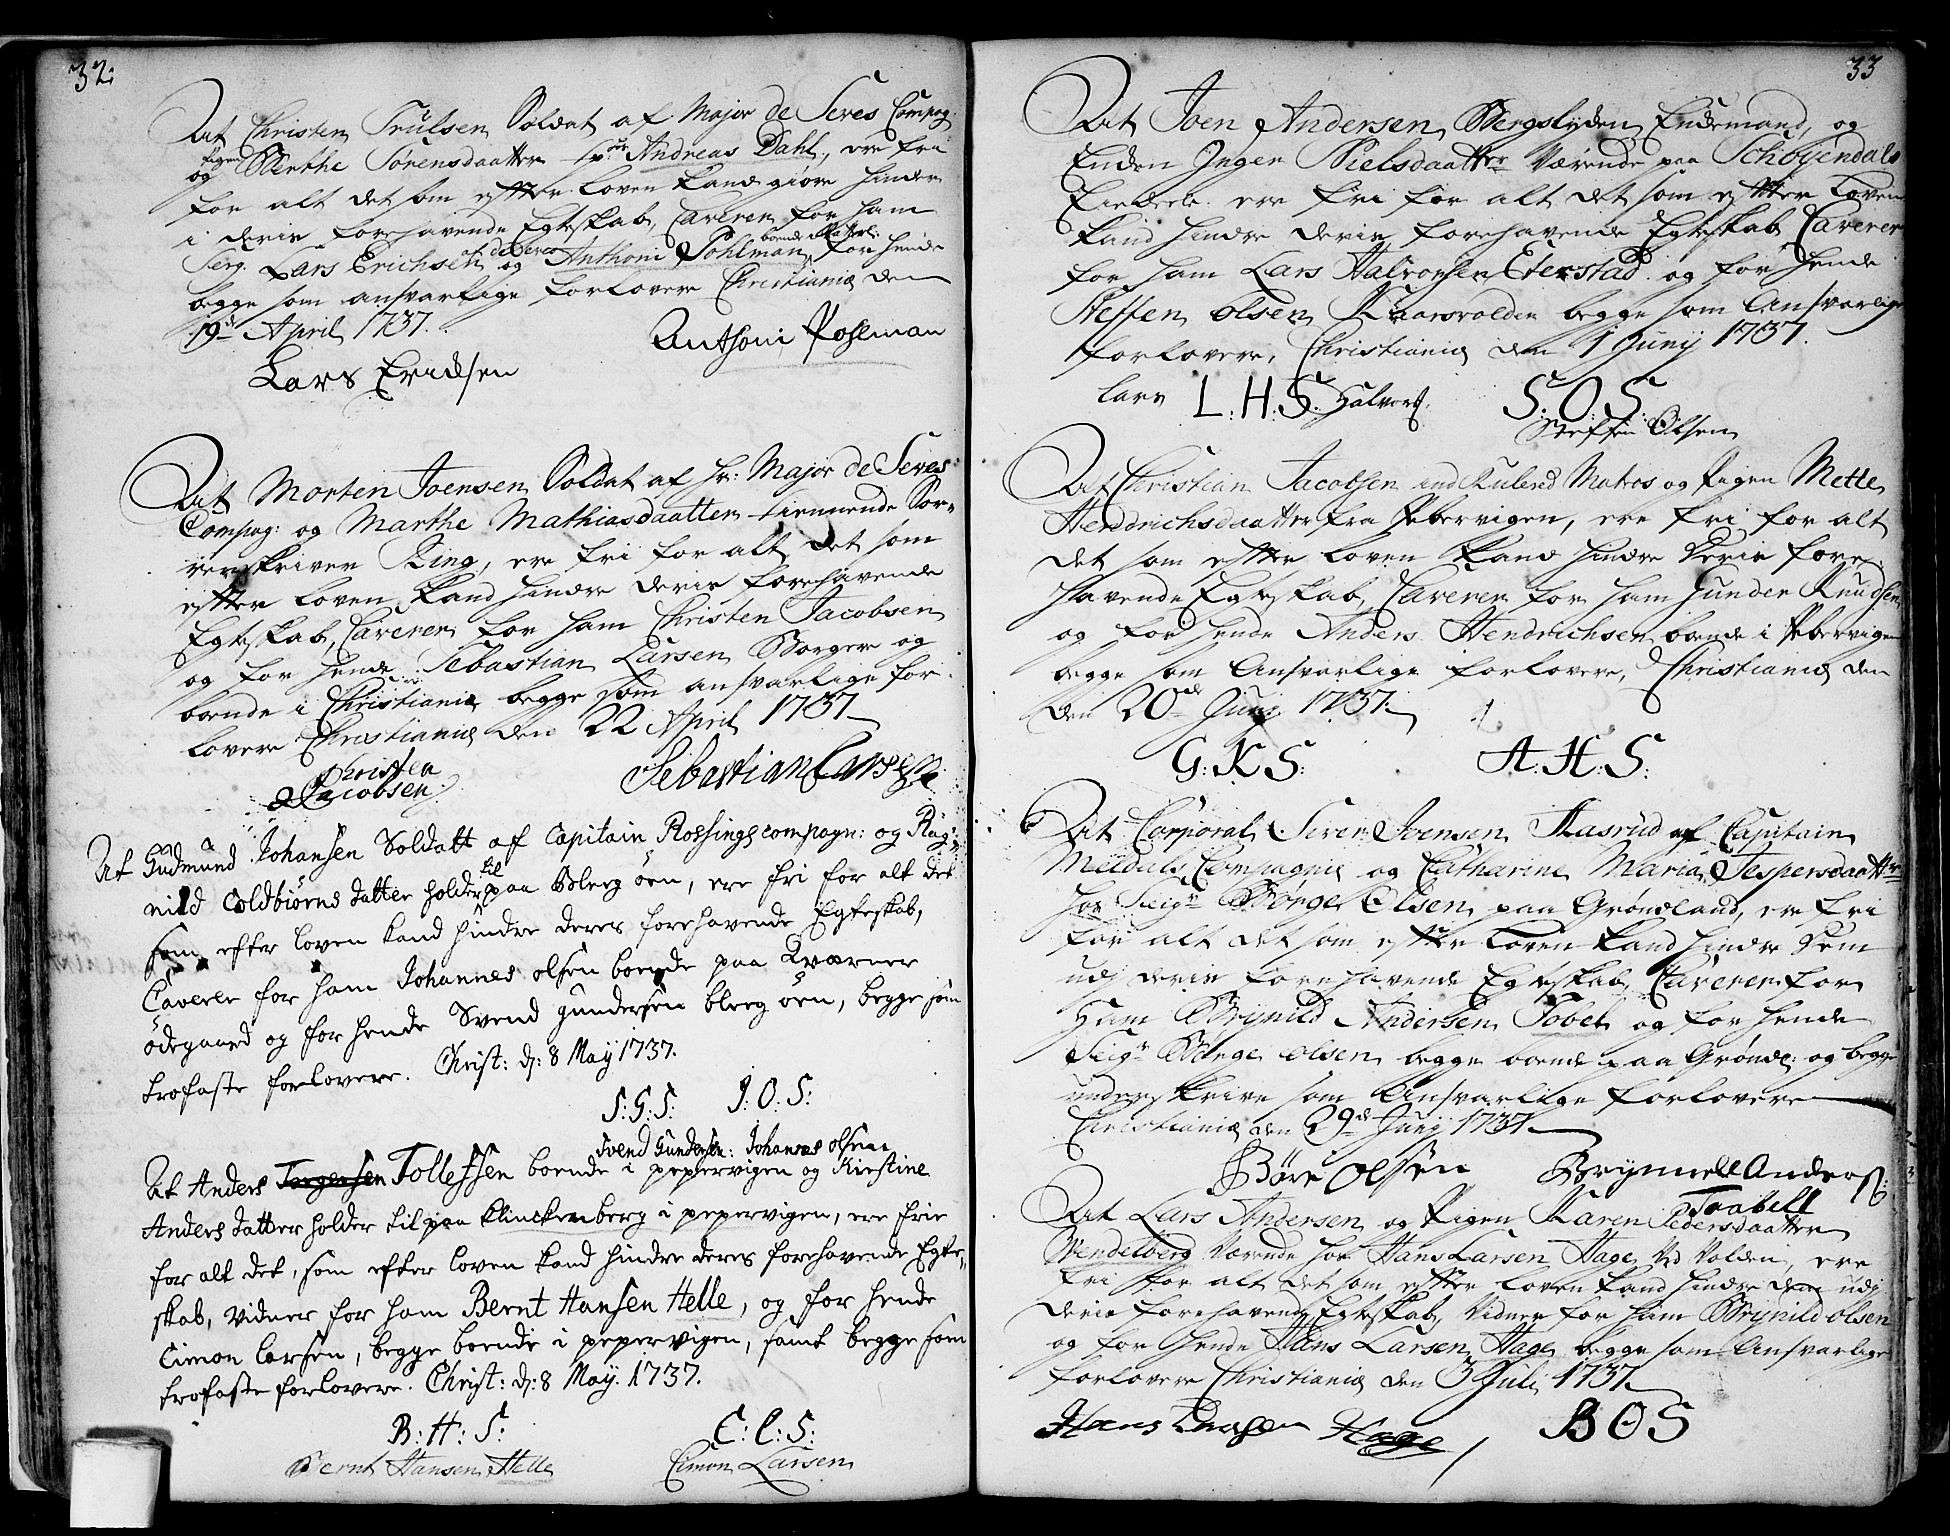 32:
At Christen Trulsen Soldat af Major de Seres Compag:
og Pigen Berthe Sørensdaatter Andreas Dahl, ere fri
for alt det som efter loven kand giøre hinder
i deris forehavende Egteskab, Caverer for ham
Serg. Lars Erichsen de Seres og Anthoni Pohlman boende for hende
begge som ansvarlige forlovere Christiania den
19de April 1737.
Lars Eridsen Anthoni Pohlman
At Morten Joensen Soldat af Hr: Major de Seres
Compag: og Marthe Mathiasdaatter tiennende Sor=
renskriver Ring, ere fri for alt det som
efter loven kand hindre deris forehavende
Egteskab, Caverer for ham Christen Jacobsen
og for hende Sebastian Larsen Borgere og
boende i Christiania begge som ansvarlige for
lovere Christiania den 22 April 1737
Christen Jacobsen Sebastian Larsen
At Gudmund Johansen Soldatt af Capitain Rossings compagn: og Rag=
nild Coldbiørns datter holder til paa Bleeg øen, ere fri for alt det
som efter loven kand hindre deres forehavende Egteskab,
Caverer for ham Johannes olsen boende paa Kværner
ødegaard og for hende Svend gundersen bleeg øen, begge som
trofaste forlovere. Christ: d: 8 May 1737.
S:G:S: J:O:S:
Svend Gundersen: Johannes olsen
At Anders Torgersen Tollefsen boende i pepervigen og Kirstine
Anders datter holder til paa Klinckenberg i pepervigen, ere frie
for alt det, som efter loven kand hindre deres forehavende Egte=
skab, vidner for ham Bernt Hansen Helle, og for hende
Cimon larsen, begge boende i pepervigen, samt begge som
trofaste forlovere. Christ: d: 8 May. 1737.
B:H:S: C:L:S:
Bernt Hansen Helle Cimon Larsen
33
At Joen Andersen Bergslyden Enckemand, og
Encken Inger Nielsdaatter Værende paa Schøyendals
Eiendele ere fri for alt det som efter Loven
kand hindre deris forehavende Egteskab Caverer
for ham Lars Halvorsen Eterstad og for hende
Steffen olsen Kaarsvolden begge som Ansvarlige
forlovere, Christiania den 1 Junij 1737.
Lars L.H.S. Halvors. S.O.S.
Steffen Olsen
At Christian Jacobsen indRulered Matros og Pigen Mette
Hendrichsdaatter fra Pebervigen, ere fri for alt
det som efter loven kand hindre deris fore=
havende Egteskab, Caverer for ham Gunder Knudsen
og for hende Anders Hendrichsen boende i Pebervigen
begge som Ansvarlige forlovere, Christiania den
den 20de Junij 1737.
G:K:S: A:H:S:
At Corporal Seren Svensen Aasrud af Capitain
Meldals Compagnie og Catharine Maria Jespersdaatter
hos Seigr Børge Olsen paa Grønland, ere fri
for alt det som efter loven kand hindre dem
udj deris forehavende Egteskab, Caverer for
Ham Brynild Andersen Tobel og for hende
Seigr Børge olsen begge boende paa Grønl: og begge
underskrive som Ansvarlige forlovere
Christiania den 29de Junij 1737
Børe olsen Brynnell Anders:
Taabell
At Lars Andersen og Pigen Karen Pedersdaatter
Wendelborg Værende hos Hans Larsen Hage Ved Volden, ere
fri for alt det som efter loven kand hindre dem udj
deris forehavende Egteskab, Vidner for ham Brynild olsen
og for hende Hans Larsen Hage begge som Ansvarlige
forlovere Christiania den 3 Juli 1737
Hans Larsen Hage BOS